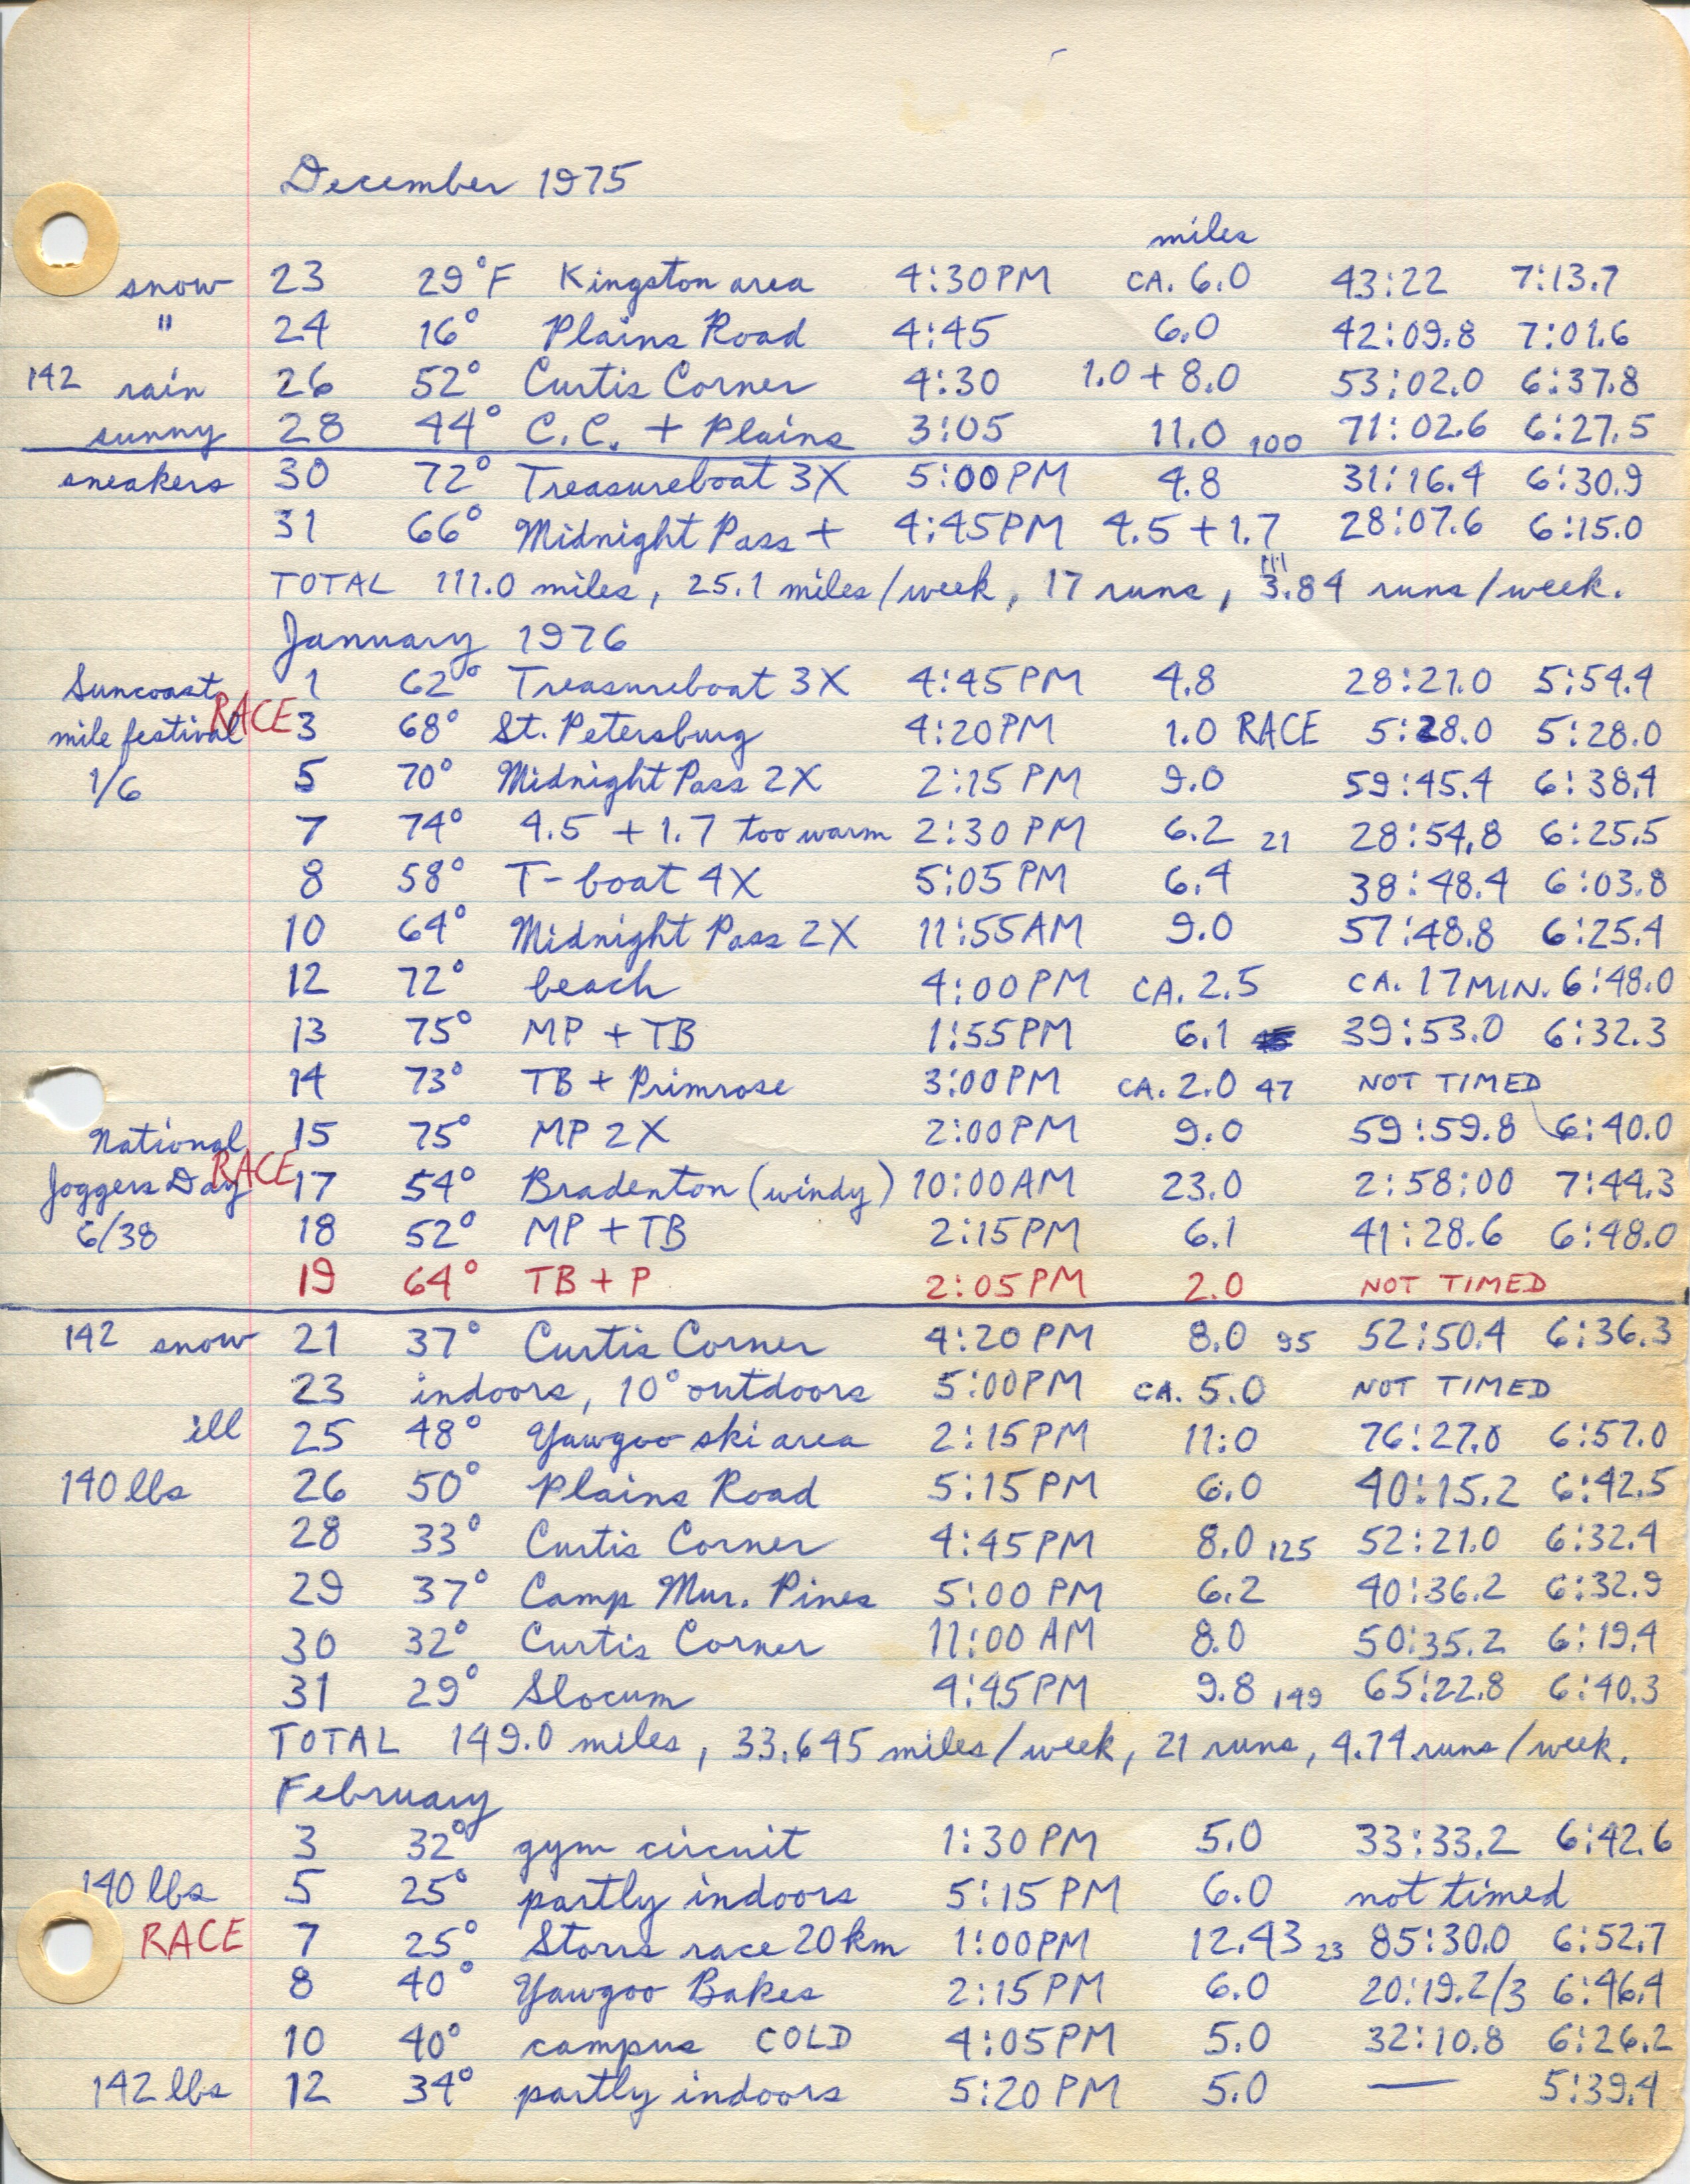 December 1975
miles
snow 23 29°F Kingston area 4:30PM CA. 6.0 43:22 7:13.7
" 24 16° Plains Road 4:45 6.0 42:09.8 7:01.6
142 rain 26 52° Curtis Corner 4:30 1.0 + 8.0 53:02.0 6:37.8
sunny 28 44° C.C. + Plains 3:05 11.0 100 71:02.6 6:27.5
sneakers 30 72° Treasureboat 3X 5:00PM 4.8 31:16.4 6:30.9
31 66° Midnight Pass + 4:45PM 4.5 + 1.7 28:07.6 6:15.0
111
TOTAL 111.0 miles, 25.1 miles/week, 17 runs, 3.84 runs/week.
January 1976
Suncoast 1 62° Treasureboat 3X 4:45PM 4.8 28:21.0 5:54.4
mile festival RACE 3 68° St. Petersburg 4:20PM 1.0 RACE 5:28.0 5:28.0
1/6 5 70° Midnight Pass 2X 2:15 PM 9.0 59:45.4 6:38.4
7 74° 4.5 + 1.7 too warm 2:30 PM 6.2 21 28:54.8 6:25.5
8 58° T-boat 4X 5:05PM 6.4 38:48.4 6:03.8
10 64° Midnight Pass 2X 11:55AM 9.0 57:48.8 6:25.4
12 72° beach 4:00PM CA. 2.5 CA. 17 MIN. 6:48.0
13 75° MP + TB 1:55PM 6.1 39:53.0 6:32.3
14 73° TB + Primrose 3:00PM CA. 2.0 47 NOT TIMED
National 15 75° MP 2X 2:00PM 9.0 59:59.8 6:40.0
Joggers Day RACE 17 54° Bradenton (windy) 10:00AM 23.0 2:58:00 7:44.3
6/38 18 52° MP + TB 2:15PM 6.1 41:28.6 6:48.0
19 64° TB + P 2:05PM 2.0 NOT TIMED
142 snow 21 37° Curtis Corner 4:20PM 8.0 95 52:50.4 6:36.3
23 indoors, 10° outdoors 5:00PM CA. 5.0 NOT TIMED
ill 25 48° Yawgoo ski area 2:15PM 11:0 76:27.0 6:57.0
140 lbs 26 50° Plains Road 5:15PM 6.0 40:15.2 6:42.5
28 33° Curtis Corner 4:45PM 8.0 125 52:21.0 6:32.4
29 37° Camp Mur. Pines 5:00 PM 6.2 40:36.2 6:32.9
30 32° Curtis Corner 11:00 AM 8.0 50:35.2 6:19.4
31 29° Slocum 4:45PM 9.8 149 65:22.8 6:40.3
TOTAL 149.0 miles, 33.645 miles/week, 21 runs, 4.74 runs/week.
February
3 32° gym circuit 1:30PM 5.0 33:33.2 6:42.6
140 lbs 5 25° partly indoors 5:15 PM 6.0 not timed
RACE 7 25° Storrs race 20km 1:00PM 12.43 23 85:30.0 6:52.7
8 40° Yawgoo Bakes 2:15PM 6.0 20:19.2/3 6:46.4
10 40° campus COLD 4:05PM 5.0 32:10.8 6:26.2
142 lbs 12 34° partly indoors 5:20 PM 5.0 — 5:39.4